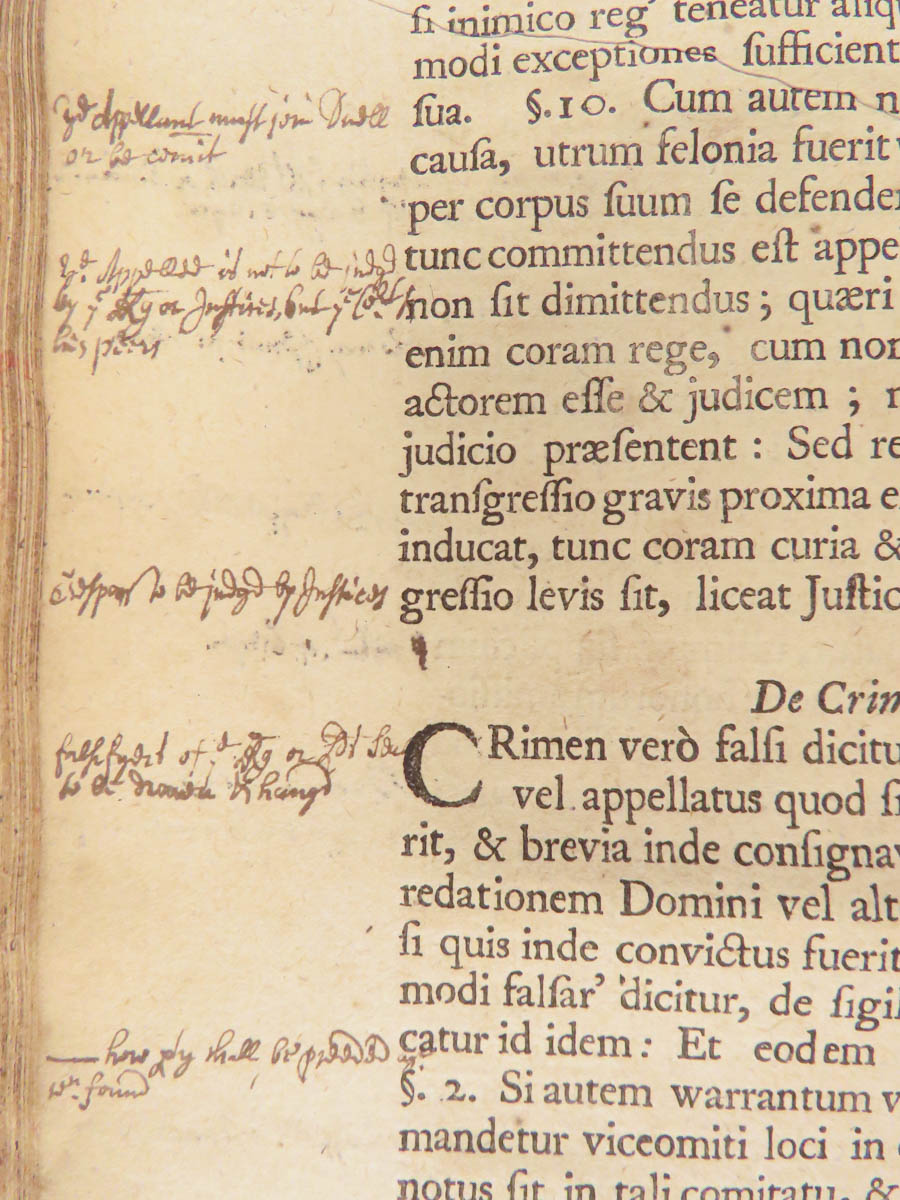 si inimico reg' teneatur aliq
modi exceptiones sufficient
sua. §. 10. Cum autem n
causa, utrum felonia fuerit
per corpus suum se defende
tunc committendus est appe
non sit dimittendus; quæri
enim coram rege, cum non
actorem esse & judicem;
judicio præsentent: Sed re
transgressio gravis proxima e
inducat, tunc coram curia &
gressio levis sit, liceat Justic
De Crim
CRimen verò falsi dicitu
vel appellatus quod si
rit, & brevia inde consigna
redationem Domini vel alt
si quis inde convictus fuerit
modi falsar' dicitur, de sigil
catur id idem: Et eodem
§. 2. Si autem warrantum v
mandetur vicecomiti loci in
notus sit in tali comitatu, &
ye Appellant must join Duell
or be comit
ye Appellee is not to be judgd
by ye Kg or Justices, but ye
his peers
Trespass to be judgd by Justices
of ye Kg or
to be drawn & hangd
how yy shall be
wn found